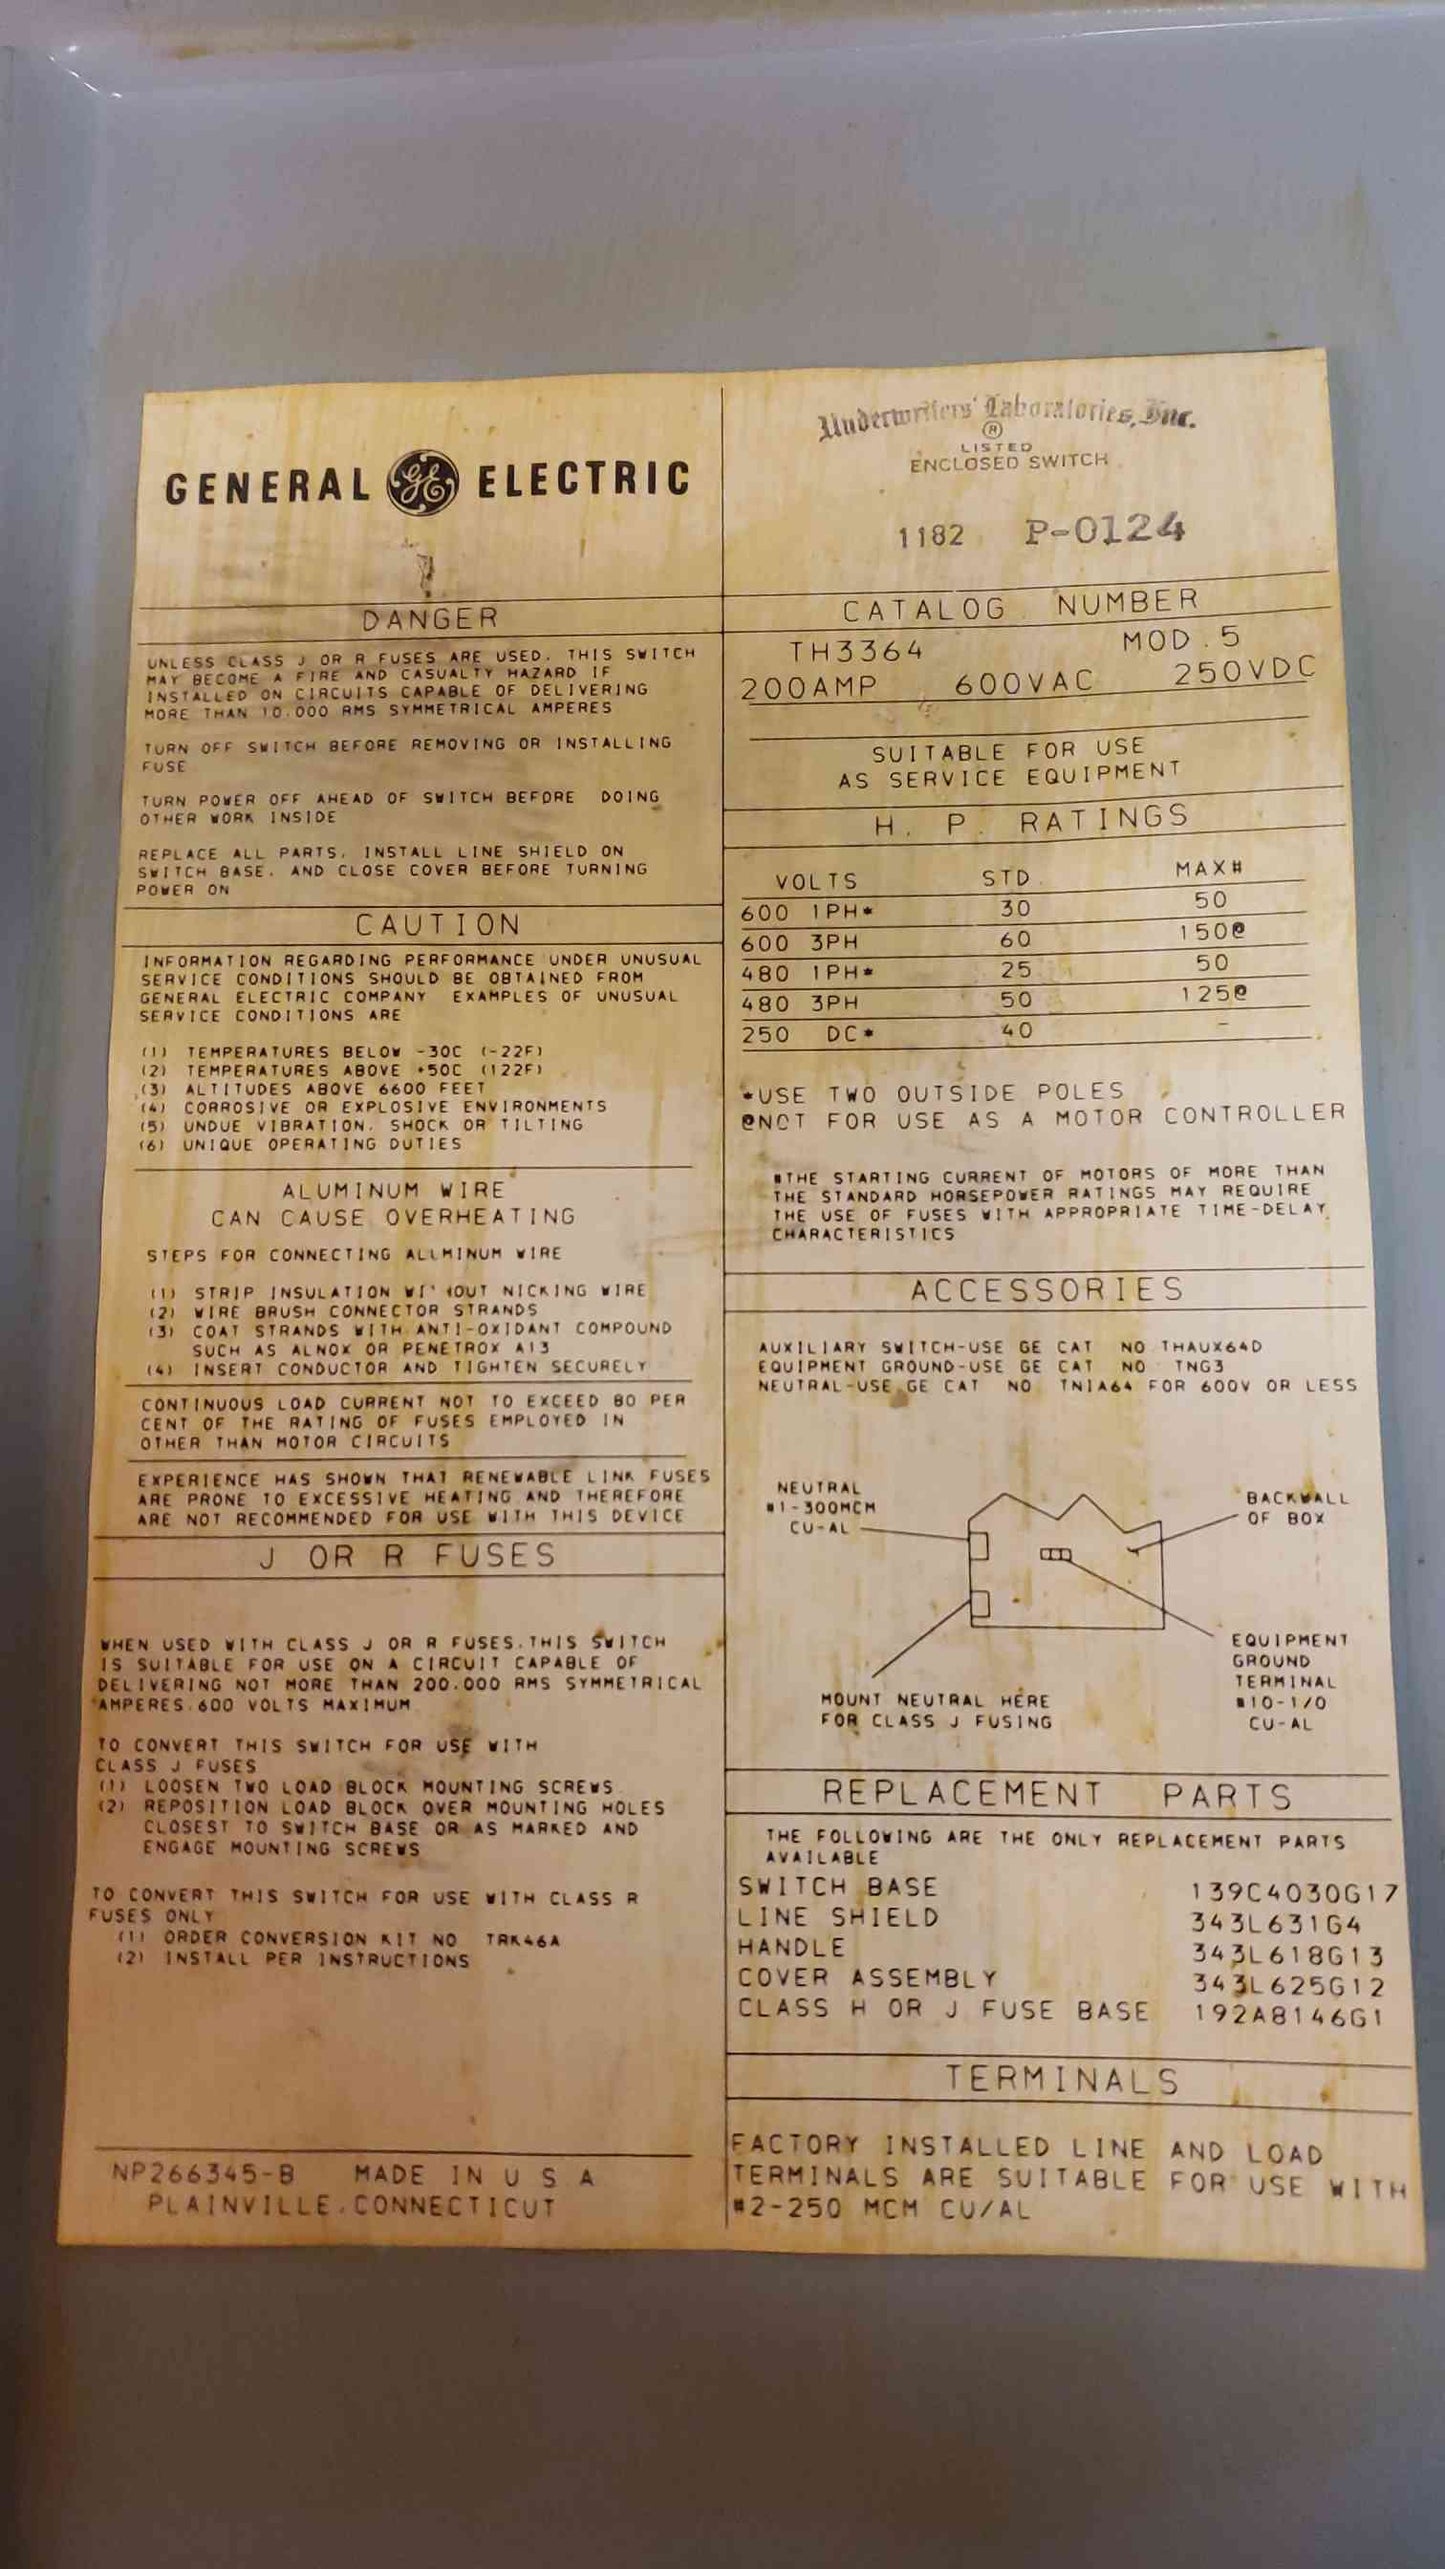 GENERAL GE ELECTRIC
DANGER
UNLESS CLASS J OR R FUSES ARE USED. THIS SWITCH
MAY BECOME A FIRE AND CASUALTY HAZARD IF
INSTALLED ON CIRCUITS CAPABLE OF DELIVERING
MORE THAN 10.000 RMS SYMMETRICAL AMPERES
TURN OFF SWITCH BEFORE REMOVING OR INSTALLING
FUSE
TURN POWER OFF AHEAD OF SWITCH BEFORE DOING
OTHER WORK INSIDE
REPLACE ALL PARTS. INSTALL LINE SHIELD ON
SWITCH BASE. AND CLOSE COVER BEFORE TURNING
POWER ON
CAUTION
INFORMATION REGARDING PERFORMANCE UNDER UNUSUAL
SERVICE CONDITIONS SHOULD BE OBTAINED FROM
GENERAL ELECTRIC COMPANY EXAMPLES OF UNUSUAL
SERVICE CONDITIONS ARE
(1) TEMPERATURES BELOW -30C (-22F)
(2) TEMPERATURES ABOVE +50C (122F)
(3) ALTITUDES ABOVE 6600 FEET
(4) CORROSIVE OR EXPLOSIVE ENVIRONMENTS
(5) UNDUE VIBRATION. SHOCK OR TILTING
(6) UNIQUE OPERATING DUTIES
ALUMINUM WIRE
CAN CAUSE OVERHEATING
STEPS FOR CONNECTING ALLMINUM WIRE
(1) STRIP INSULATION WITHOUT NICKING WIRE
(2) WIRE BRUSH CONNECTOR STRANDS
(3) COAT STRANDS WITH ANTI-OXIDANT COMPOUND
SUCH AS ALNOX OR PENETROX A13
(4) INSERT CONDUCTOR AND TIGHTEN SECURELY
CONTINUOUS LOAD CURRENT NOT TO EXCEED 80 PER
CENT OF THE RATING OF FUSES EMPLOYED IN
OTHER THAN MOTOR CIRCUITS
EXPERIENCE HAS SHOWN THAT RENEWABLE LINK FUSES
ARE PRONE TO EXCESSIVE HEATING AND THEREFORE
ARE NOT RECOMMENDED FOR USE WITH THIS DEVICE
J OR R FUSES
WHEN USED WITH CLASS J OR R FUSES.THIS SWITCH
IS SUITABLE FOR USE ON A CIRCUIT CAPABLE OF
DELIVERING NOT MORE THAN 200.000 RMS SYMMETRICAL
AMPERES.600 VOLTS MAXIMUM
TO CONVERT THIS SWITCH FOR USE WITH
CLASS J FUSES
(1) LOOSEN TWO LOAD BLOCK MOUNTING SCREWS
(2) REPOSITION LOAD BLOCK OVER MOUNTING HOLES
CLOSEST TO SWITCH BASE OR AS MARKED AND
ENGAGE MOUNTING SCREWS
TO CONVERT THIS SWITCH FOR USE WITH CLASS R
FUSES ONLY
(1) ORDER CONVERSION KIT NO TRK46A
(2) INSTALL PER INSTRUCTIONS
NP266345-B MADE IN U S A
PLAINVILLE.CONNECTICUT
Underwriters' Laboratories, Inc.
®
LISTED
ENCLOSED SWITCH
1182 P-0124
CATALOG NUMBER
TH3364 MOD.5
200AMP 600VAC 250VDC
SUITABLE FOR USE
AS SERVICE EQUIPMENT
H. P. RATINGS
VOLTS STD. MAX#
600 1PH* 30 50
600 3PH 60 150@
480 1PH* 25 50
480 3PH 50 125@
250 DC* 40 -
*USE TWO OUTSIDE POLES
@NOT FOR USE AS A MOTOR CONTROLLER
#THE STARTING CURRENT OF MOTORS OF MORE THAN
THE STANDARD HORSEPOWER RATINGS MAY REQUIRE
THE USE OF FUSES WITH APPROPRIATE TIME-DELAY
CHARACTERISTICS
ACCESSORIES
AUXILIARY SWITCH-USE GE CAT NO THAUX64D
EQUIPMENT GROUND-USE GE CAT NO TNG3
NEUTRAL-USE GE CAT NO TN1A64 FOR 600V OR LESS
NEUTRAL
#1-300MCM
CU-AL
BACKWALL
OF BOX
MOUNT NEUTRAL HERE
FOR CLASS J FUSING
EQUIPMENT
GROUND
TERMINAL
#10-1/0
CU-AL
REPLACEMENT PARTS
THE FOLLOWING ARE THE ONLY REPLACEMENT PARTS
AVAILABLE
SWITCH BASE 139C4030G17
LINE SHIELD 343L631G4
HANDLE 343L618G13
COVER ASSEMBLY 343L625G12
CLASS H OR J FUSE BASE 192A8146G1
TERMINALS
FACTORY INSTALLED LINE AND LOAD
TERMINALS ARE SUITABLE FOR USE WITH
#2-250 MCM CU/AL